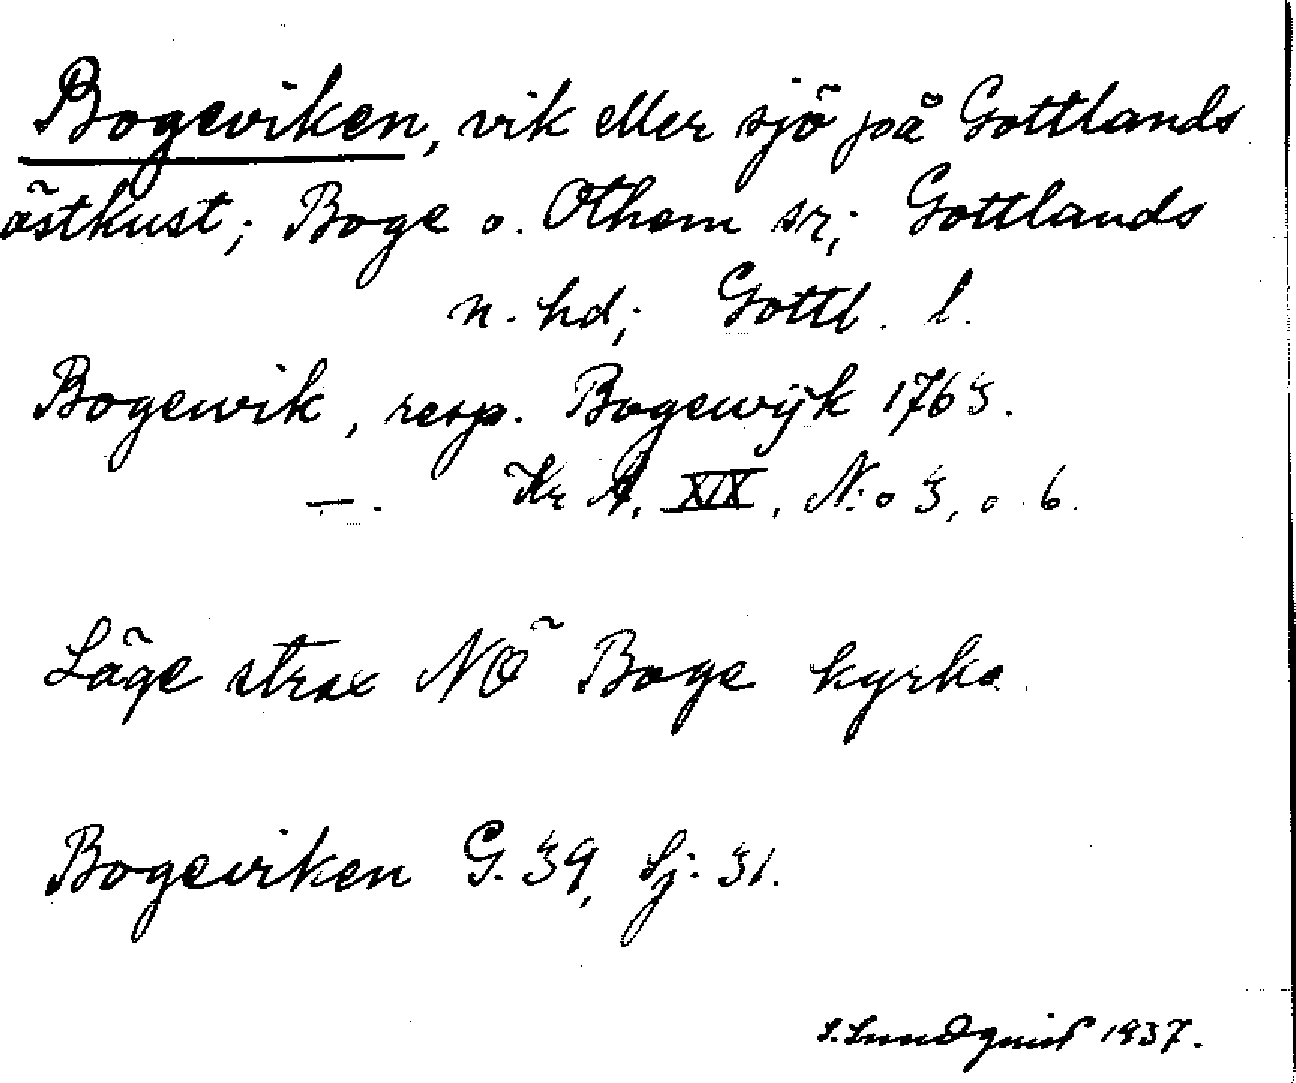 Bogeviken, vik eller sjö på Gottlands
östkust; Boge o. Othem sr; Gottlands
n. hd; Gottl. l.
Bogewik, resp. Bogewÿk 1763.
—. Kr A, XIX, N:o 3, o 6.
Läge strax NÖ Boge kyrka
Bogeviken G. 39, Sj: 31.
S. Lundquist 1937.